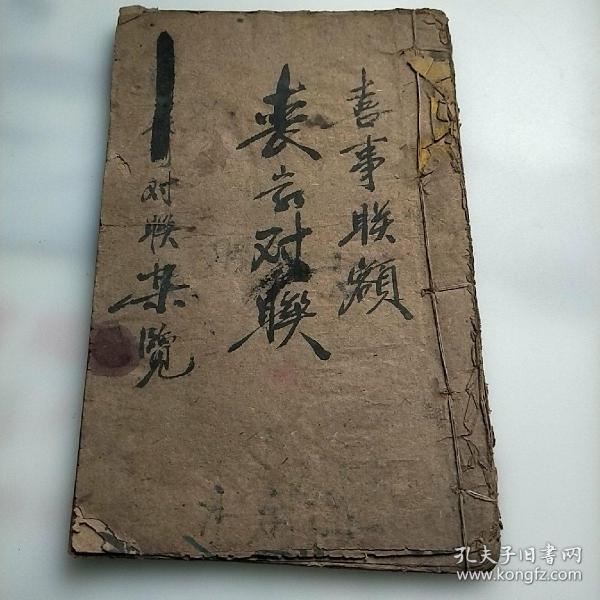 喜事联额
丧言对联
对联集览
孔夫子旧书网
www.kongfz.com